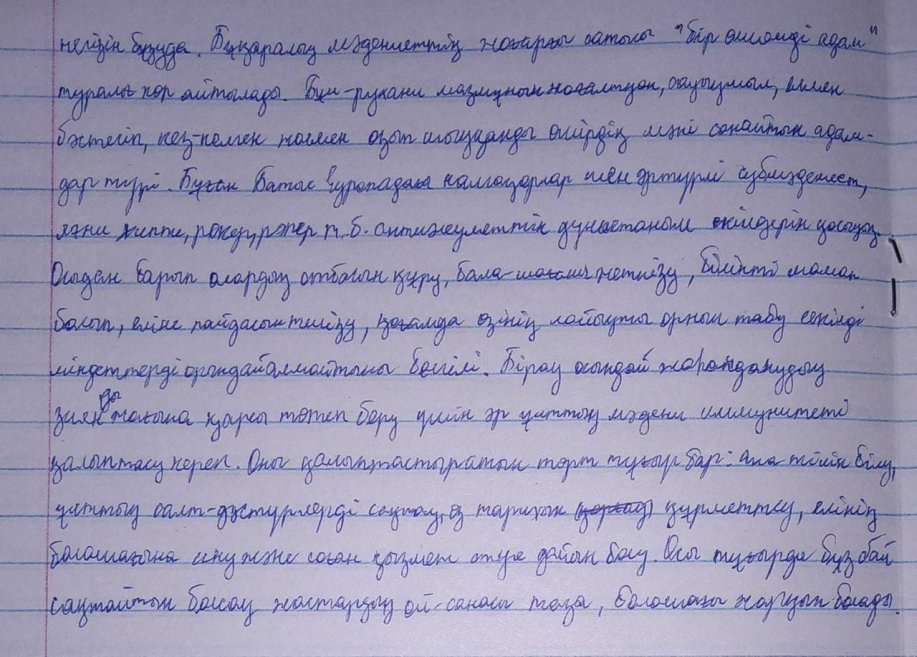 негізін бұзуда. Бұқаралық мәдениеттің жоғарғы сатысы "бір өлшемді адам"
туралы көп айтылады. Бұл - рухани мазмұнын жоғалтқан, бәстегіп, кез-келген
бәстегіп, кез-келген жолмен озып шығуды өмірдің мәні санайтын адам-
дар түрі. Бұған Батыс Еуропадағы қалғандар мен әртүрлі субмәдениет,
яғни хиппи, рокер, рэпер т.б. антиәлеуметтік дүниетаным өкілдерін қосыңыз.
Осыдан барып олардың отбасын құру, бала-шағасын жеткізу, білікті маман
болып, еліне пайдасын тигізу, қоғамда өзінің лайықты орнын табу секілді
міндеттерді орындай алмайтыны белгілі. Бірақ осындай жаһанданудың
зиянды жағына қарсы төтеп беру үшін әр ұлттың мәдени иммунитеті
қалыптасу керек. Оны қалыптастыратын төрт тұғыр бар: ана тілін білу,
ұлттық салт-дәстүрлерді сақтау, өз тарихын құрметтеу, елінің
болашағына сену және соған қызмет етуге дайын болу. Осы тұғырды бұзбай
сақтайтын болсақ жастардың ой-санасы таза, болашағы жарқын болады.